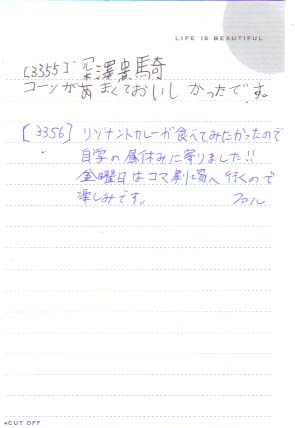 LIFE IS BEAUTIFUL
[3355] 深澤貴騎
コーンがあまくておいしかったです。
[3356] リゾナントカレーが食べてみたかったので
自学の昼休みに寄りました!!
金曜日はコマ劇場へ行くので
楽しみです。 ファル
◂CUT OFF